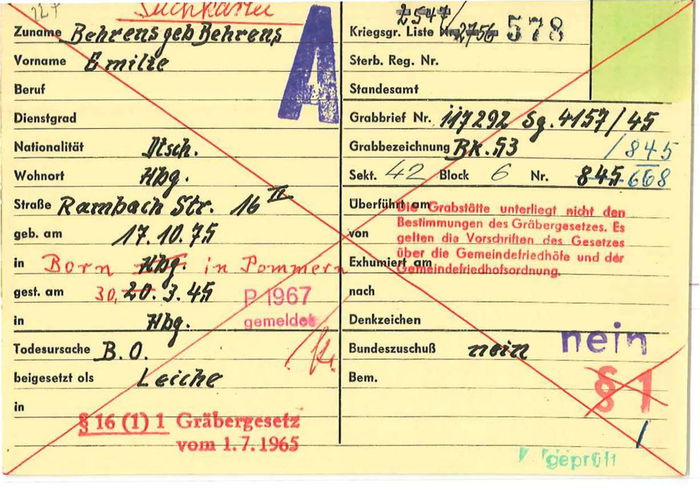 Suchkartei
127
Zuname Behrens geb Behrens
Vorname Emilie
Beruf
Dienstgrad
Nationalität Dtsch.
Wohnort Hbg.
Straße Rambach Str. 16 II
geb. am 17.10.75
in Born Hbg. in Pommern
gest. am 30. 20.3.45
in Hbg.
Todesursache B.O.
beigesetzt als Leiche
in
§ 16 (1) 1 Gräbergesetz
vom 1.7.1965
A
P 1967
gemeldet
2547
Kriegsgr. Liste Nr. 2756 578
Sterb. Reg. Nr.
Standesamt
Grabbrief Nr. 117292 Sg. 4157/45
Grabbezeichnung BK. 53 /845
Sekt. 42 Block 6 Nr. 845 668
Überführt am
Die Grabstätte unterliegt nicht den
Bestimmungen des Gräbergesetzes. Es
von gelten die Vorschriften des Gesetzes
über die Gemeindefriedhöfe und der
Exhumiert am
Gemeindefriedhofsordnung.
nach
Denkzeichen
Bundeszuschuß nein nein
Bem. § 1
geprüft